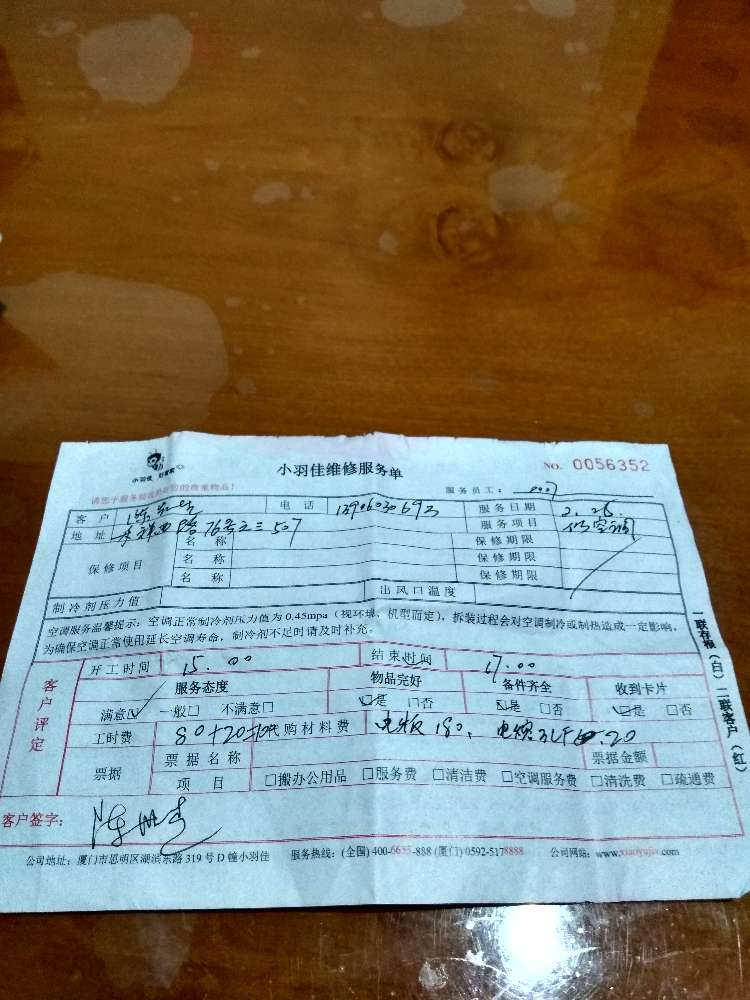 小羽佳维修服务单
NO. 0056352
小羽佳
服务员工:
客户 电话 服务日期 2.26.
地址 76号之三507 服务项目 修空调
保修项目 名称 保修期限
名称 保修期限
名称 保修期限
制冷剂压力值 出风口温度
空调服务温馨提示: 空调正常制冷剂压力值为0.45mpa(视环境、机型而定),拆装过程会对空调制冷或制热造成一定影响,
为确保空调正常使用延长空调寿命,制冷剂不足时请及时补充。
开工时间 15.00 结束时间 17.00
客户评定
服务态度 物品完好 备件齐全 收到卡片
满意☑ 一般□ 不满意□ ☑是 □否 ☑是 □否 ☑是 □否
工时费 80+20 代购材料费 电板180、 20
票据 票据名称 票据金额
项目 □搬办公用品 □服务费 □清洁费 □空调服务费 □清洗费 □疏通费
客户签字:
公司地址: 厦门市思明区湖滨东路319号D幢小羽佳 服务热线: (全国)400-6655-888 (厦门)0592-5178888 公司网站: www.xiaoyujia.com
一联存根(白) 二联客户(红)